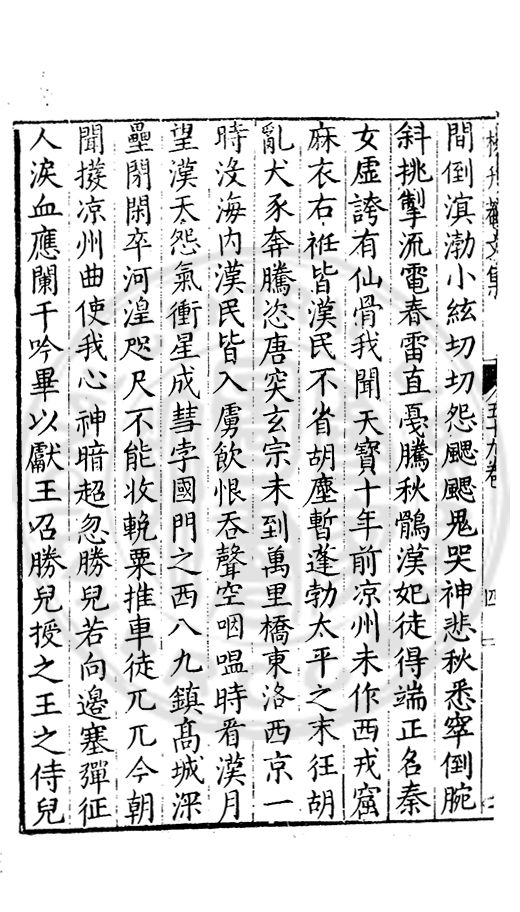 間倒滇渤小絃切切怨颸颸鬼哭神悲秋悉窣倒腕
斜挑掣流電春雷直戞騰秋鶻漢妃徒得端正名秦
女虛誇有仙骨我聞天寶十年前凉州未作西戎窟
麻衣右袵皆漢民不省胡塵暫蓬勃太平之末狂胡
亂犬豕奔騰恣唐突玄宗未到萬里橋東洛西京一
時沒海内漢民皆入虜飲恨吞聲空咽嗢時看漢月
望漢天怨氣衝星成彗孛國門之西八九鎮髙城深
壘閉閑卒河湟咫尺不能收輓粟推車徒兀兀今朝
聞撥凉州曲使我心神暗超忽勝兒若向邊塞彈征
人淚血應闌干吟畢以獻王召勝兒授之王之侍兒
五十九卷
四